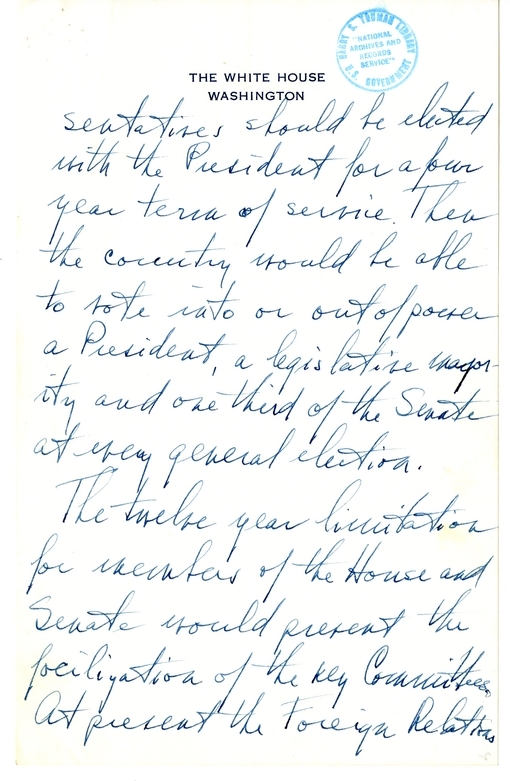 HARRY S. TRUMAN LIBRARY
"NATIONAL
ARCHIVES AND
RECORDS
SERVICE"
U.S. GOVERNMENT
THE WHITE HOUSE
WASHINGTON
sentatives should be elected
with the President for a four
year term of service. Then
the country would be able
to vote into or out of power
a President, a legislative major-
ity and one third of the Senate
at every general election.
The twelve year limitation
for members of the House and
Senate would prevent the
focilization of the key Committees
At present the Foreign Relations